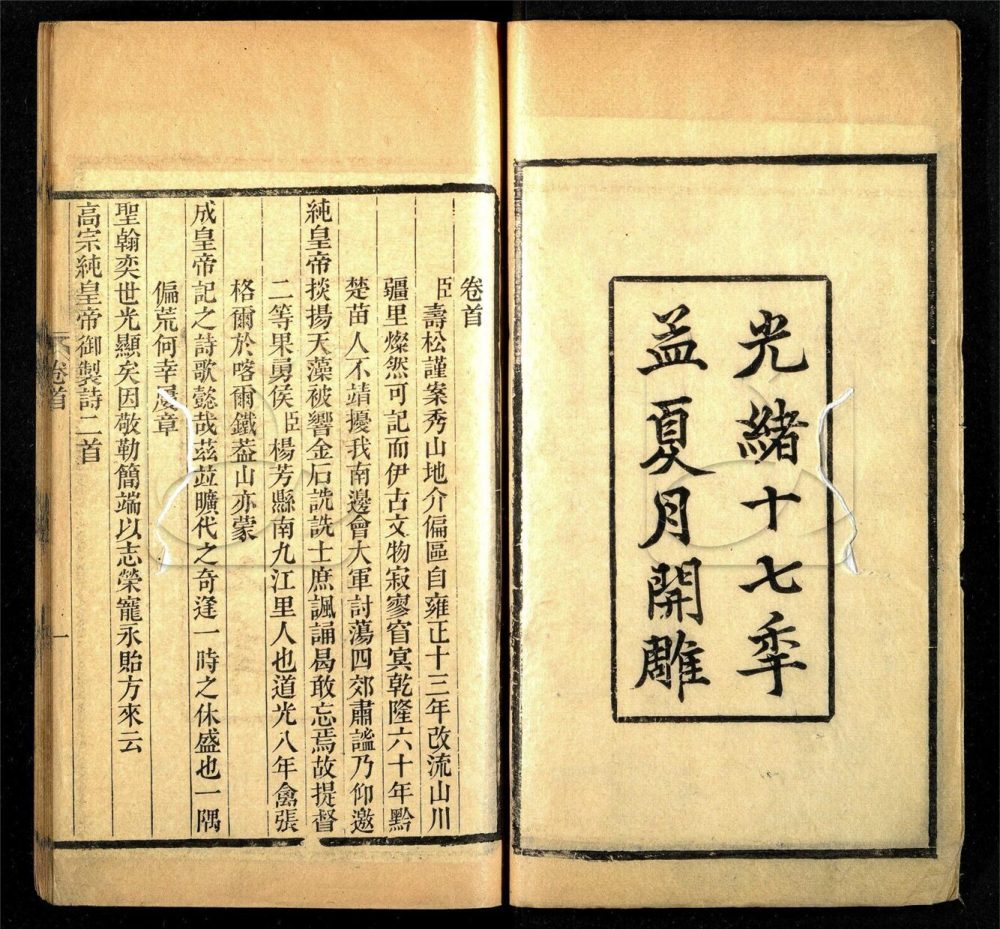 光緒十七秊
孟夏月開雕
卷首
臣壽松謹案秀山地介偏區自雍正十三年改流山川
疆里燦然可記而伊古文物寂寥窅冥乾隆六十年黔
楚苗人不靖擾我南邊會大軍討蕩四郊肅謐乃仰邀
純皇帝掞揚天藻被響金石詵詵士庶諷誦曷敢忘焉故提督
二等果勇侯臣楊芳縣南九江里人也道光八年禽張
格爾於喀爾鐵葢山亦蒙
成皇帝記之詩歌懿哉茲竝曠代之奇逢一時之休盛也一隅
偏荒何幸屢章
聖翰奕世光顯矣因敬勒簡端以志榮寵永貽方來云
高宗純皇帝御製詩二首
卷首
一